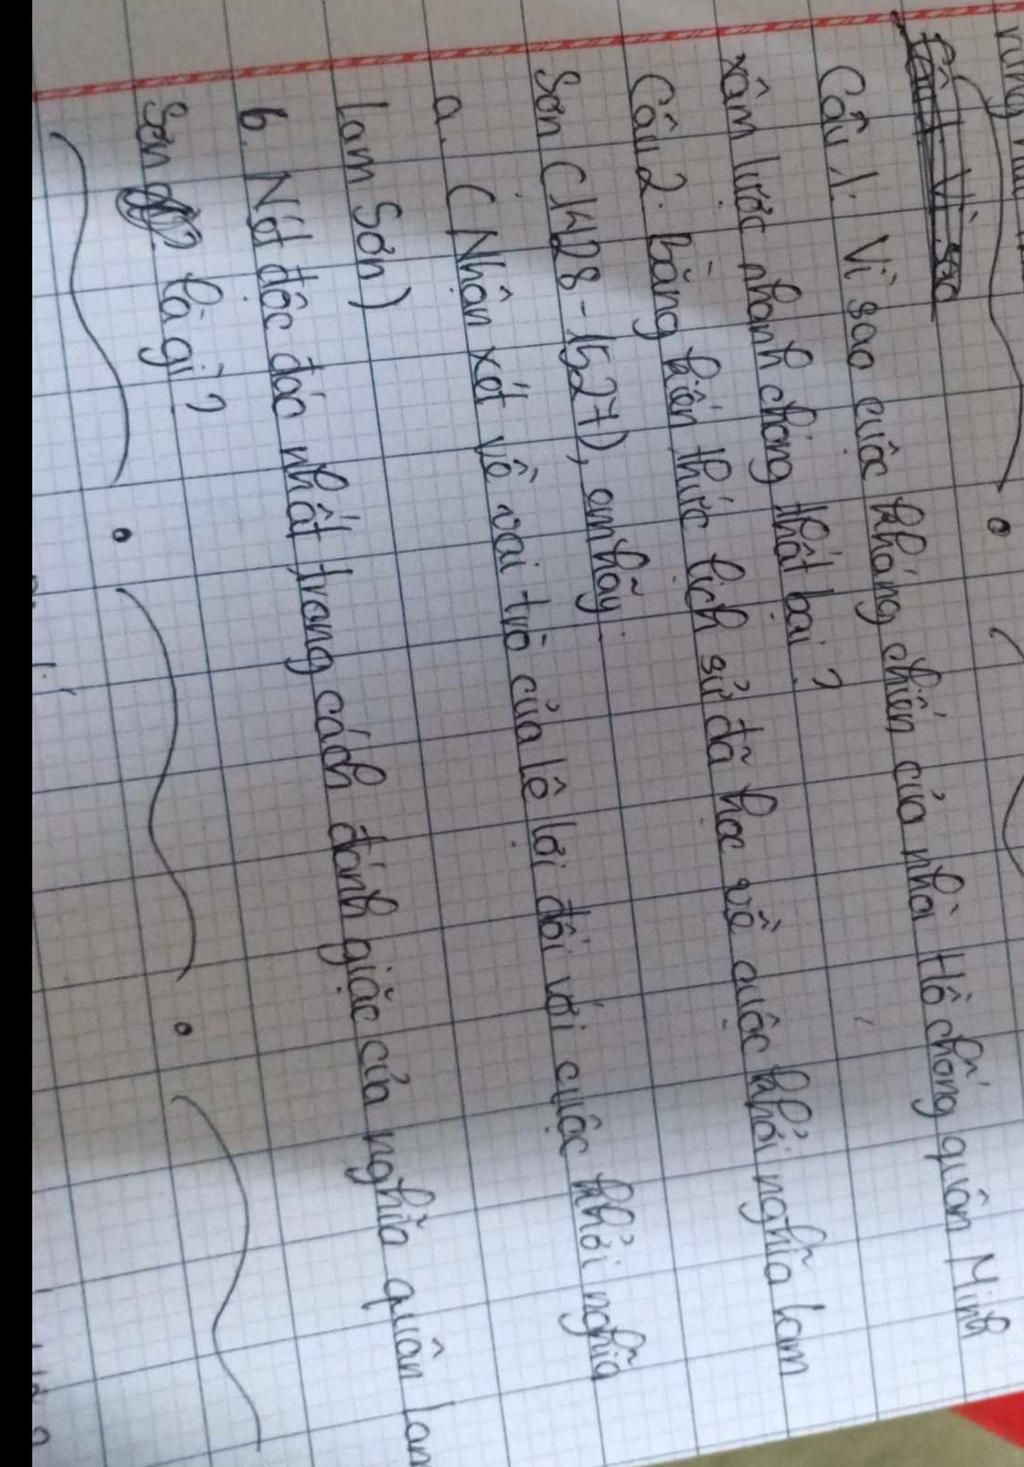 Câu 1: Vì sao cuộc kháng chiến của nhà Hồ chống quân Minh
xâm lược nhanh chóng thất bại?
Câu 2: bằng kiến thức lịch sử đã học về cuộc khởi nghĩa Lam
Sơn (1428-1527), em hãy:
a. (Nhận xét về vai trò của lê lợi đối với cuộc khởi nghĩa
Lam Sơn)
b. Nét độc đáo nhất trong cách đánh giặc của nghĩa quân Lam
Sơn là gì?